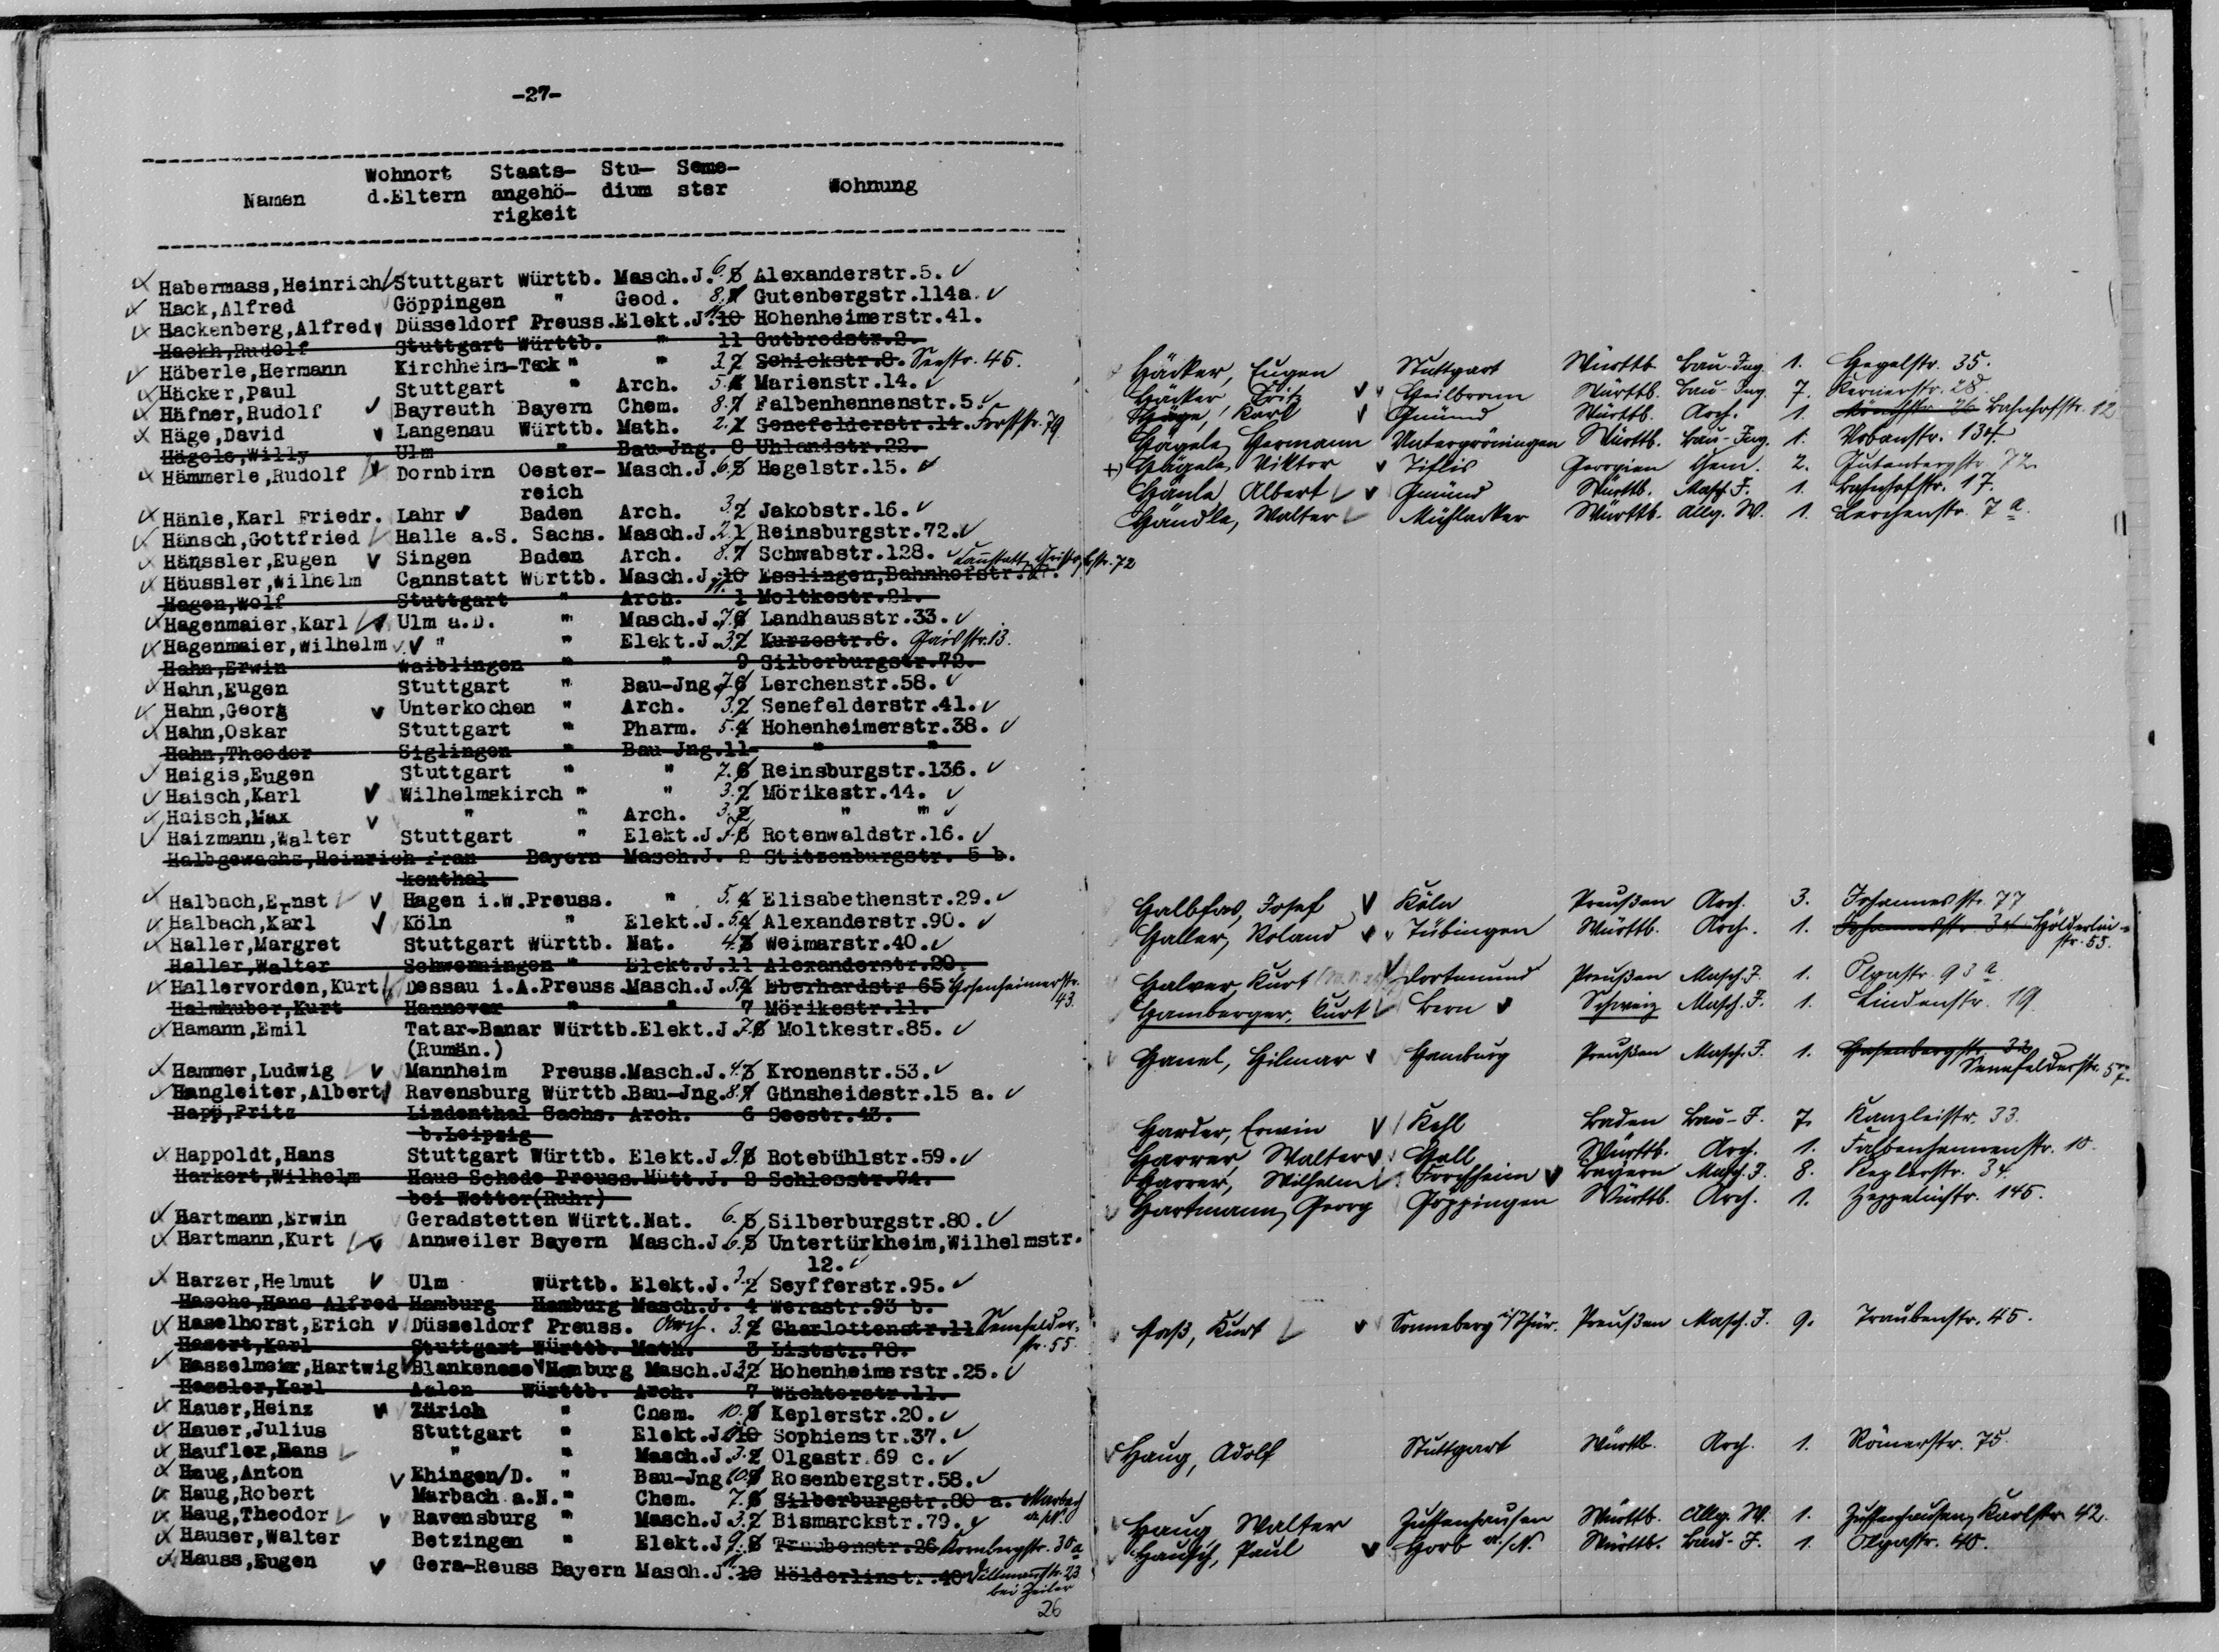 -27-
Wohnort Staats- Stu- Seme-
Namen d.Eltern angehö- dium ster Wohnung
rigkeit
Habermass,Heinrich Stuttgart Württb. Masch.J. 6. 5 Alexanderstr.5.
Hack,Alfred Göppingen " Geod. 8. 7 Gutenbergstr.114a.
Hackenberg,Alfred Düsseldorf Preuss.Elekt.J. 11. 10 Hohenheimerstr.41.
Hackh,Rudolf Stuttgart Württb. " 11 Gutbrodstr.2.
Häberle,Hermann Kirchheim-Teck " " 3. 2 Schickstr.8. Seestr. 45.
Häcker,Paul Stuttgart " Arch. 5. 4 Marienstr.14.
Häfner,Rudolf Bayreuth Bayern Chem. 8. 7 Falbenhennenstr.5.
Häge,David Langenau Württb. Math. 2. 1 Senefelderstr.14. Forststr. 79
Hägele,Willy Ulm " Bau-Jng. 8 Uhlandstr.22.
Hämmerle,Rudolf Dornbirn Oester- Masch.J. 6. 5 Hegelstr.15.
reich
Hänle,Karl Friedr. Lahr Baden Arch. 3. 2 Jakobstr.16.
Hänsch,Gottfried Halle a.S. Sachs. Masch.J. 2. 1 Reinsburgstr.72.
Hänssler,Eugen Singen Baden Arch. 8. 7 Schwabstr.128.
Häussler,Wilhelm Cannstatt Württb. Masch.J. 11. 10 Esslingen,Bahnhofstr. Cannstatt, str. 72
Hagen,Wolf Stuttgart " Arch. 1 Moltkestr.21.
Hagenmaier,Karl Ulm a.D. " Masch.J. 7. 6 Landhausstr.33.
Hagenmaier,Wilhelm " " Elekt.J. 3. 2 Kurzestr.6. Gaisstr. 13.
Hahn,Erwin Waiblingen " " 9 Silberburgstr.72.
Hahn,Eugen Stuttgart " Bau-Jng. 7. 6 Lerchenstr.58.
Hahn,Georg Unterkochen " Arch. 3. 2 Senefelderstr.41.
Hahn,Oskar Stuttgart " Pharm. 5. 4 Hohenheimerstr.38.
Hahn,Theodor Siglingen " Bau-Jng.11 " "
Haigis,Eugen Stuttgart " " 7. 6 Reinsburgstr.136.
Haisch,Karl Wilhelmskirch " " 3. 2 Mörikestr.14.
Haisch,Max " " Arch. 3. 2 " "
Haizmann,Walter Stuttgart " Elekt.J. 7. 6 Rotenwaldstr.16.
Halbgewachs,Heinrich Fran Bayern Masch.J. 2 Stitzenburgstr. 5 b.
kenthal
Halbach,Ernst Hagen i.W.Preuss. " 5. 4 Elisabethenstr.29.
Halbach,Karl Köln " Elekt.J. 5. 4 Alexanderstr.90.
Haller,Margret Stuttgart Württb. Nat. 4. 3 Weimarstr.40.
Haller,Walter Schwenningen " Elekt.J.11 Alexanderstr.20.
Hallervorden,Kurt Dessau i.A.Preuss.Masch.J. 5. 4 Eberhardstr 65 Hohenheimerstr.
43.
Halmhuber,Kurt Hannover " " 7 Mörikestr.11.
Hamann,Emil Tatar-Banar Württb.Elekt.J. 7. 6 Moltkestr.85.
(Rumän.)
Hammer,Ludwig Mannheim Preuss.Masch.J. 4. 3 Kronenstr.53.
Hangleiter,Albert Ravensburg Württb.Bau-Jng. 8. 7 Gänsheidestr.15 a.
Happ,Fritz Lindenthal Sachs. Arch. 6 Seestr.43.
b.Leipzig
Happoldt,Hans Stuttgart Württb. Elekt.J. 9. 8 Rotebühlstr.59.
Harkort,Wilhelm Haus Schede Preuss.Hütt.J. 2 Schlosstr.74.
bei Wetter(Ruhr)
Hartmann,Erwin Geradstetten Württ.Nat. 6. 5 Silberburgstr.80.
Hartmann,Kurt Annweiler Bayern Masch.J. 6. 5 Untertürkheim,Wilhelmstr.
12.
Harzer,Helmut Ulm Württb. Elekt.J. 3. 2 Seyfferstr.95.
Hasche,Hans Alfred Hamburg Hamburg Masch.J. 4 Werastr.93 b.
Haselhorst,Erich Düsseldorf Preuss. Arch. 3. 2 Charlottenstr.11 Senefelder-
str. 55.
Hasert,Karl Stuttgart Württb. Math. 3 Liststr.78.
Hasselmeier,Hartwig Blankenese Hamburg Masch.J. 3. 2 Hohenheimerstr.25.
Hassler,Karl Aalen Württb. Arch. 7 Wächterstr.11.
Hauer,Heinz Zürich " Chem. 10. 9 Keplerstr.20.
Hauer,Julius Stuttgart " Elekt.J. 10 Sophienstr.37.
Haufler,Hans " " Masch.J. 3. 2 Olgastr.69 c.
Haug,Anton Ehingen/D. " Bau-Jng 10. 9 Rosenbergstr.58.
Haug,Robert Marbach a.N. " Chem. 7. 6 Silberburgstr.80 a. Marbach
a. N.
Haug,Theodor Ravensburg " Masch.J. 3. 2 Bismarckstr.79.
Hauser,Walter Betzingen " Elekt.J. 9. 8 Traubenstr.26 Kornbergstr. 30 a
Hauss,Eugen Gera-Reuss Bayern Masch.J. 11. 10 Hölderlinstr.40 Dillmannstr. 23
bei Zeiler
26
Häcker, Eugen Stuttgart Württb Bau-Ing. 1. Hegelstr. 35.
Häcker Fritz Heilbronn Württb. Bau-Ing. 7. Kernerstr. 28
Häge, Karl Gmünd Württb. Arch. 1. Bahnhofstr. 12
Hägele, Hermann Untergröningen Württb. Bau-Ing. 1. Urbanstr. 134
Hägele, Viktor Tiflis Georgien Chem. 2. Gutenbergstr. 72.
Hänle, Albert Gmünd Württb. Masch. J. 1. Bahnhofstr. 17.
Händle, Walter Mühlacker Württb. Allg. W. 1. Lerchenstr. 7 a.
Halbfas, Josef Köln Preußen Arch. 3. Johannesstr. 77
Haller, Roland Tübingen Württb. Arch. 1. Johannesstr. 34 Hölderlin-
str. 55.
Halver, Kurt Dortmund Preußen Masch. J. 1. Olgastr. 93 a.
Hamberger, Kurt Bern Schweiz Masch. J. 1. Lindenstr. 19
Hanel, Hilmar Hamburg Preußen Masch. J. 1. Hasenbergstr. 32
Senefelderstr. 57.
Harder, Erwin Kehl Baden Bau-J. 7. Kanzleistr. 33.
Harrer, Walter Hall Württb. Arch. 1. Falbenhennenstr. 10.
Harrer, Wilhelm Forchheim Bayern Masch. J. 8. Keplerstr. 34.
Hartmann, Georg Göppingen Württb. Arch. 1. Zeppelinstr. 145.
Haß, Kurt Sonneberg i/Thür. Preußen Masch. J. 9. Traubenstr. 45.
Haug, Adolf Stuttgart Württb. Arch. 1. Römerstr. 75.
Haug, Walter Zuffenhausen Württb. Allg. W. 1. Zuffenhausen, Karlstr. 42.
Hausch, Paul Horb a./N. Württb. Bau-J. 1. Olgastr. 40.